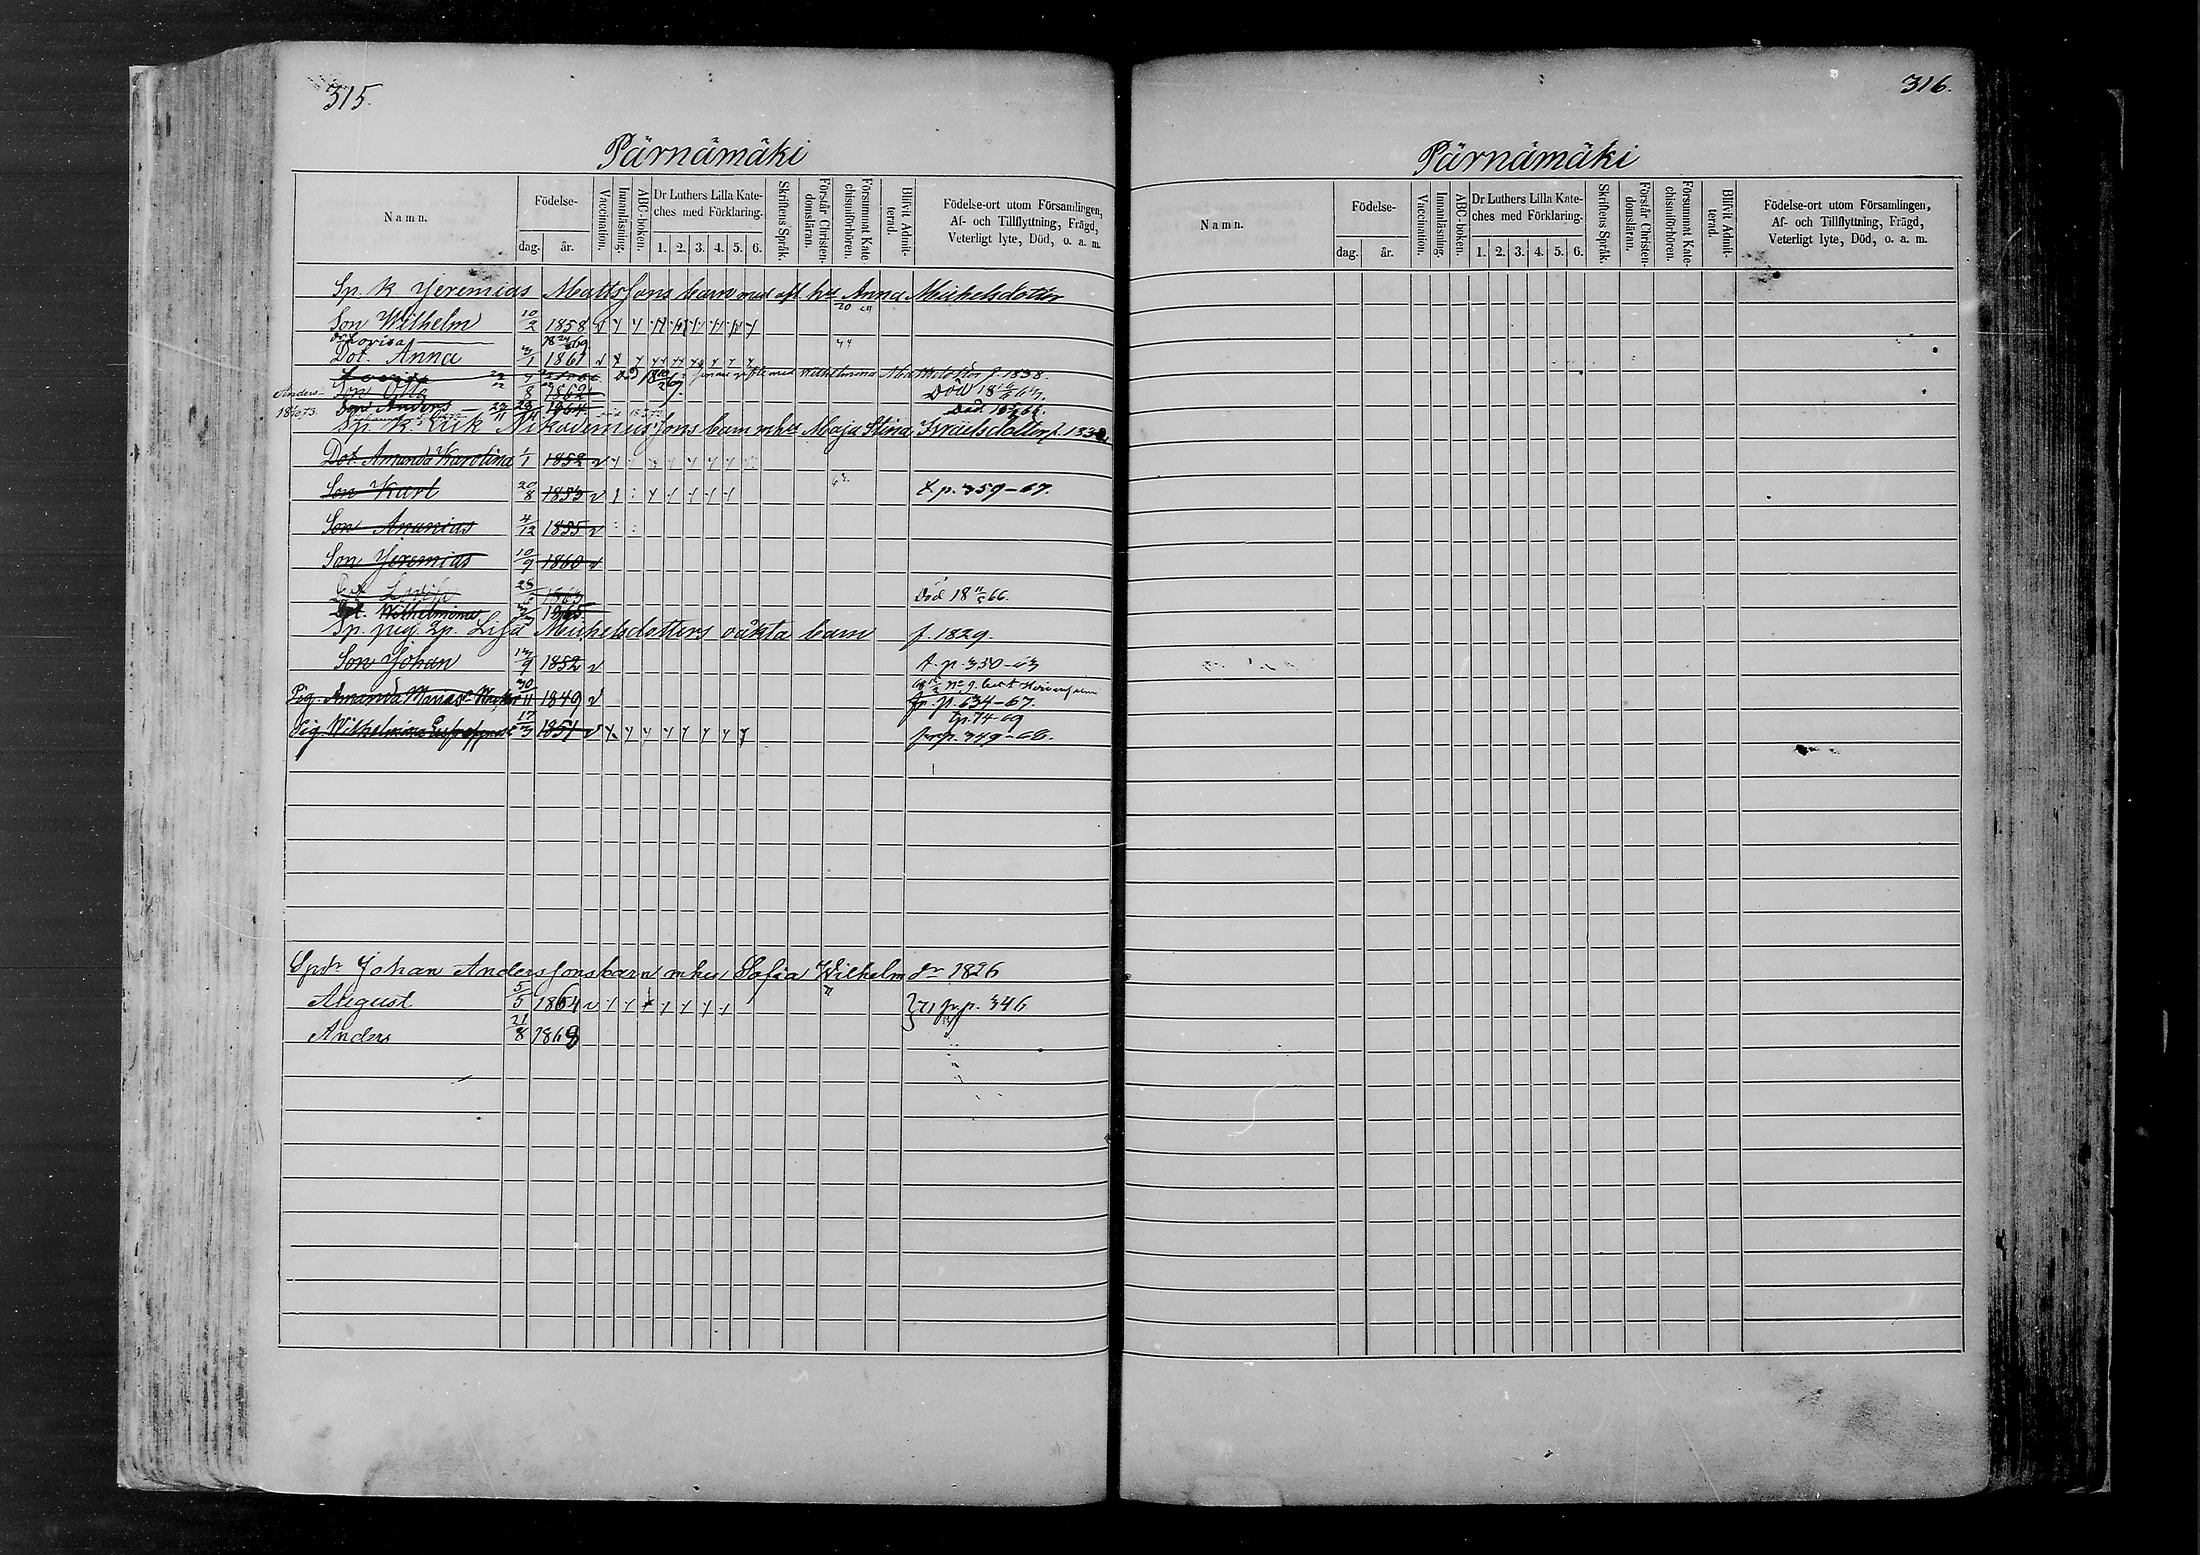 315.
Pärnämäki
Namn.
Födelse-
dag.
år.
Vaccination.
Innanläsning.
ABC-boken.
Dr Luthers Lilla Kate-
ches med Förklaring.
1. 2. 3. 4. 5. 6.
Skriftens Språk.
Förstår Christen-
domsläran.
Försummat Kate-
chismiförhören.
Blifvit Admit-
terad.
Födelse-ort utom Församlingen,
Af- och Tillflyttning, Frägd,
Veterligt lyte, Död, o. a. m.
Sp. k Jeremias Mattssons barn med afl. hu Anna Michelsdotter
Son Wilhelm 10/2 1858
Lovisa
Dot. Anna 3/1 1861
Wilhelmina f. 1838.
Son 8 1862 Död
Anders
Son Anders 1864 Död
Sp. k. Erik Nikodemussons barn mhu Maja Stina Israelsdotter f.
Dot. Amanda Karolina 1/1 1852
Son Karl 20/8 1853 t. p. 359-67.
Son Ananias 4/12 1855
Son Jeremias 10/9 1860
Dot. 28 1863 Död 18 66.
Dot. Wilhelmina 1865
Sp. pig. Lisa Michelsdotters oäkta barn f. 1829.
Son Johan 9 1852 t. p. 350-63
Pig. Amanda 30/11 1849 fr. p. 634-67.
tp. 74-69
Pig. Wilhelmina 17/3 1851 fr. p. 349-66.
Johan Anderssons barn mhu Sofia Wilhelm dr 1826
August 5/5 1864 71 fr p. 346
Anders 21/8 1869
316.
Pärnämäki
Namn.
Födelse-
dag.
år.
Vaccination.
Innanläsning.
ABC-boken.
Dr Luthers Lilla Kate-
ches med Förklaring.
1. 2. 3. 4. 5. 6.
Skriftens Språk.
Förstår Christen-
domsläran.
Försummat Kate-
chismiförhören.
Blifvit Admit-
terad.
Födelse-ort utom Församlingen,
Af- och Tillflyttning, Frägd,
Veterligt lyte, Död, o. a. m.